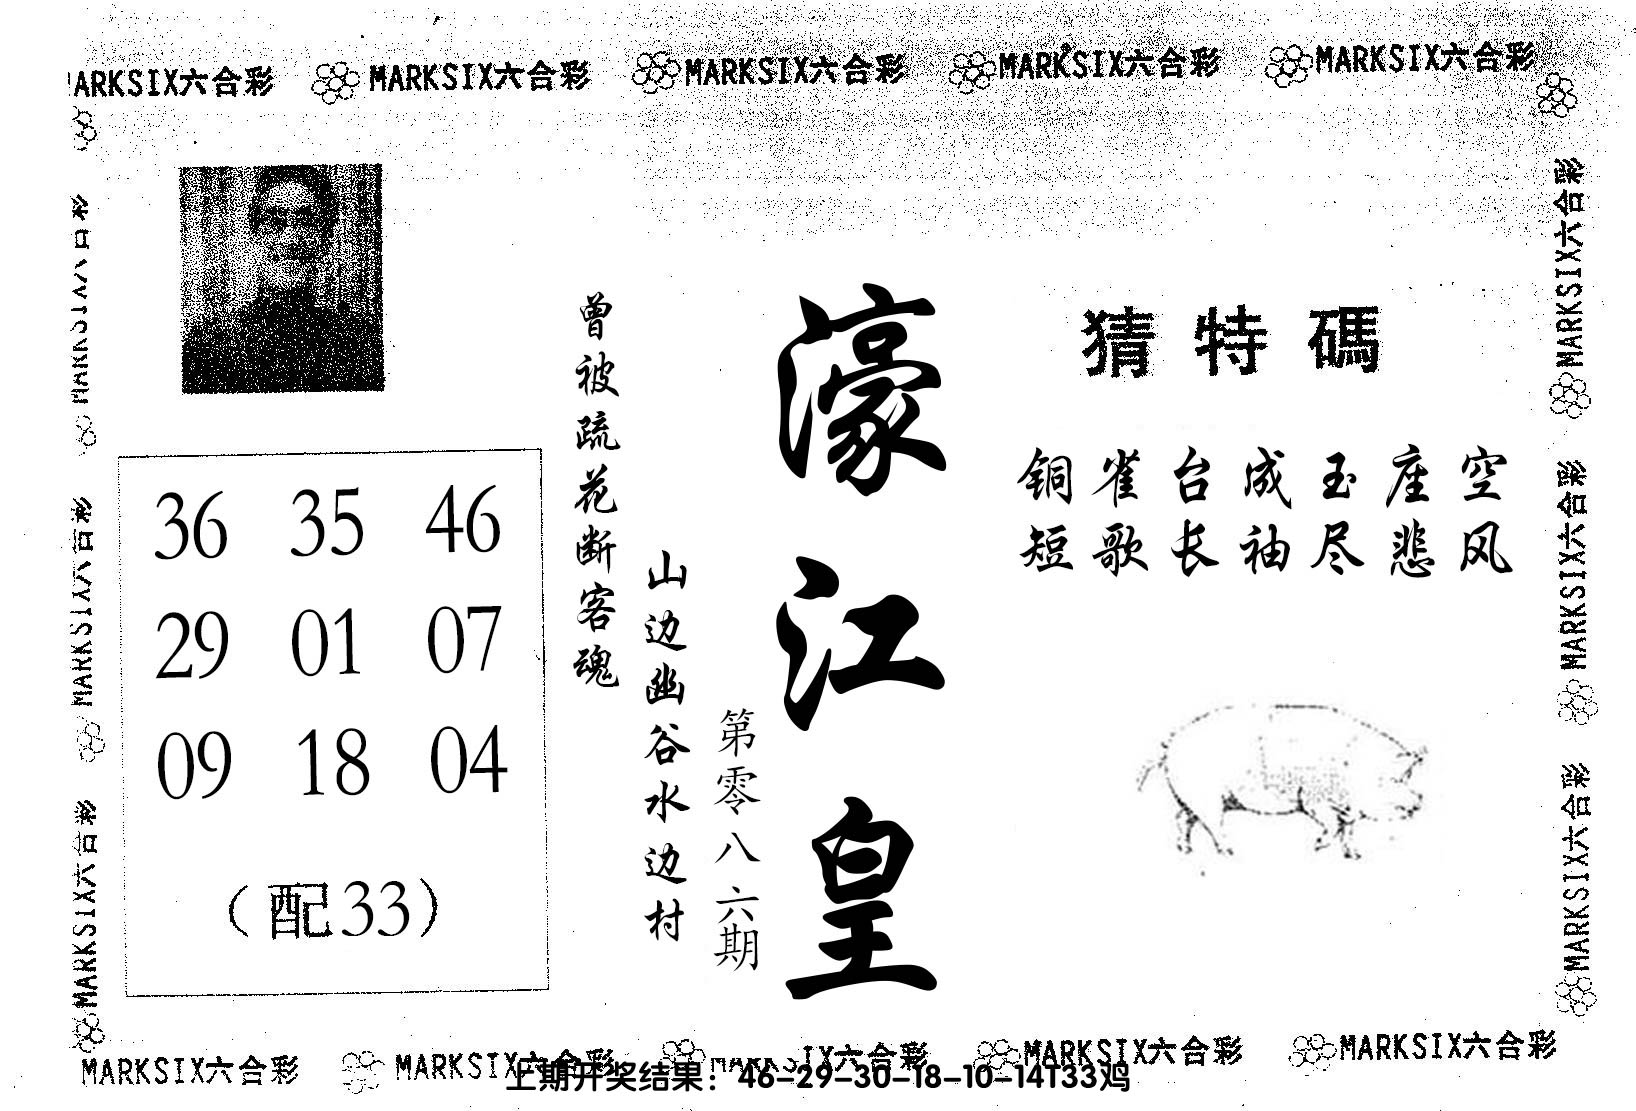 MARKSIX六合彩 MARKSIX六合彩 MARKSIX六合彩 MARKSIX六合彩 MARKSIX六合彩
猜特碼
铜雀台成玉座空
短歌长袖尽悲风
濠江皇
第零八六期
山边幽谷水边村
曾被疏花断客魂
36 35 46
29 01 07
09 18 04
（配33）
MARKSIX六合彩
MARKSIX六合彩
MARKSIX六合彩
MARKSIX六合彩
MARKSIX六合彩
MARKSIX六合彩
MARKSIX六合彩 MARKSIX六合彩 MARKSIX六合彩 MARKSIX六合彩 MARKSIX六合彩
上期开奖结果：46-29-30-18-10-14T33鸡